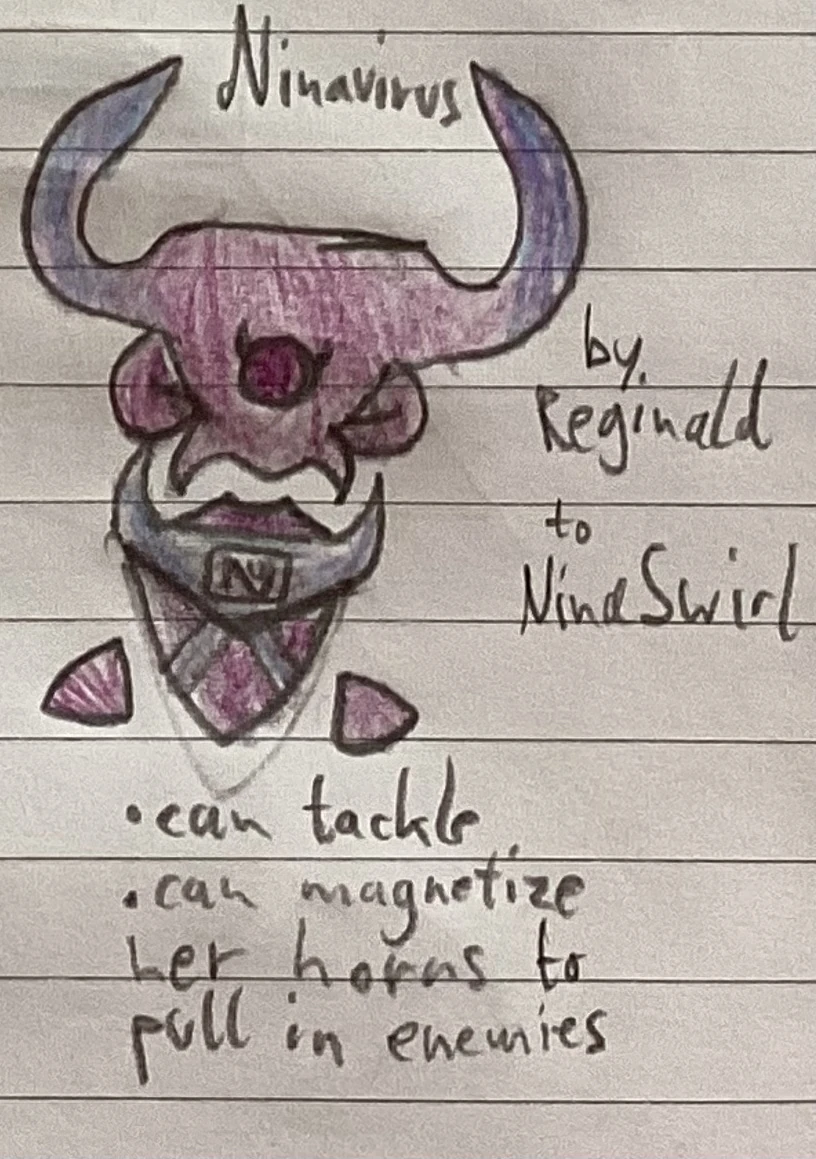 Ninavirus
by
Reginald
to
NinaSwirl
N
• can tackle
• can magnetize
her horns to
pull in enemies